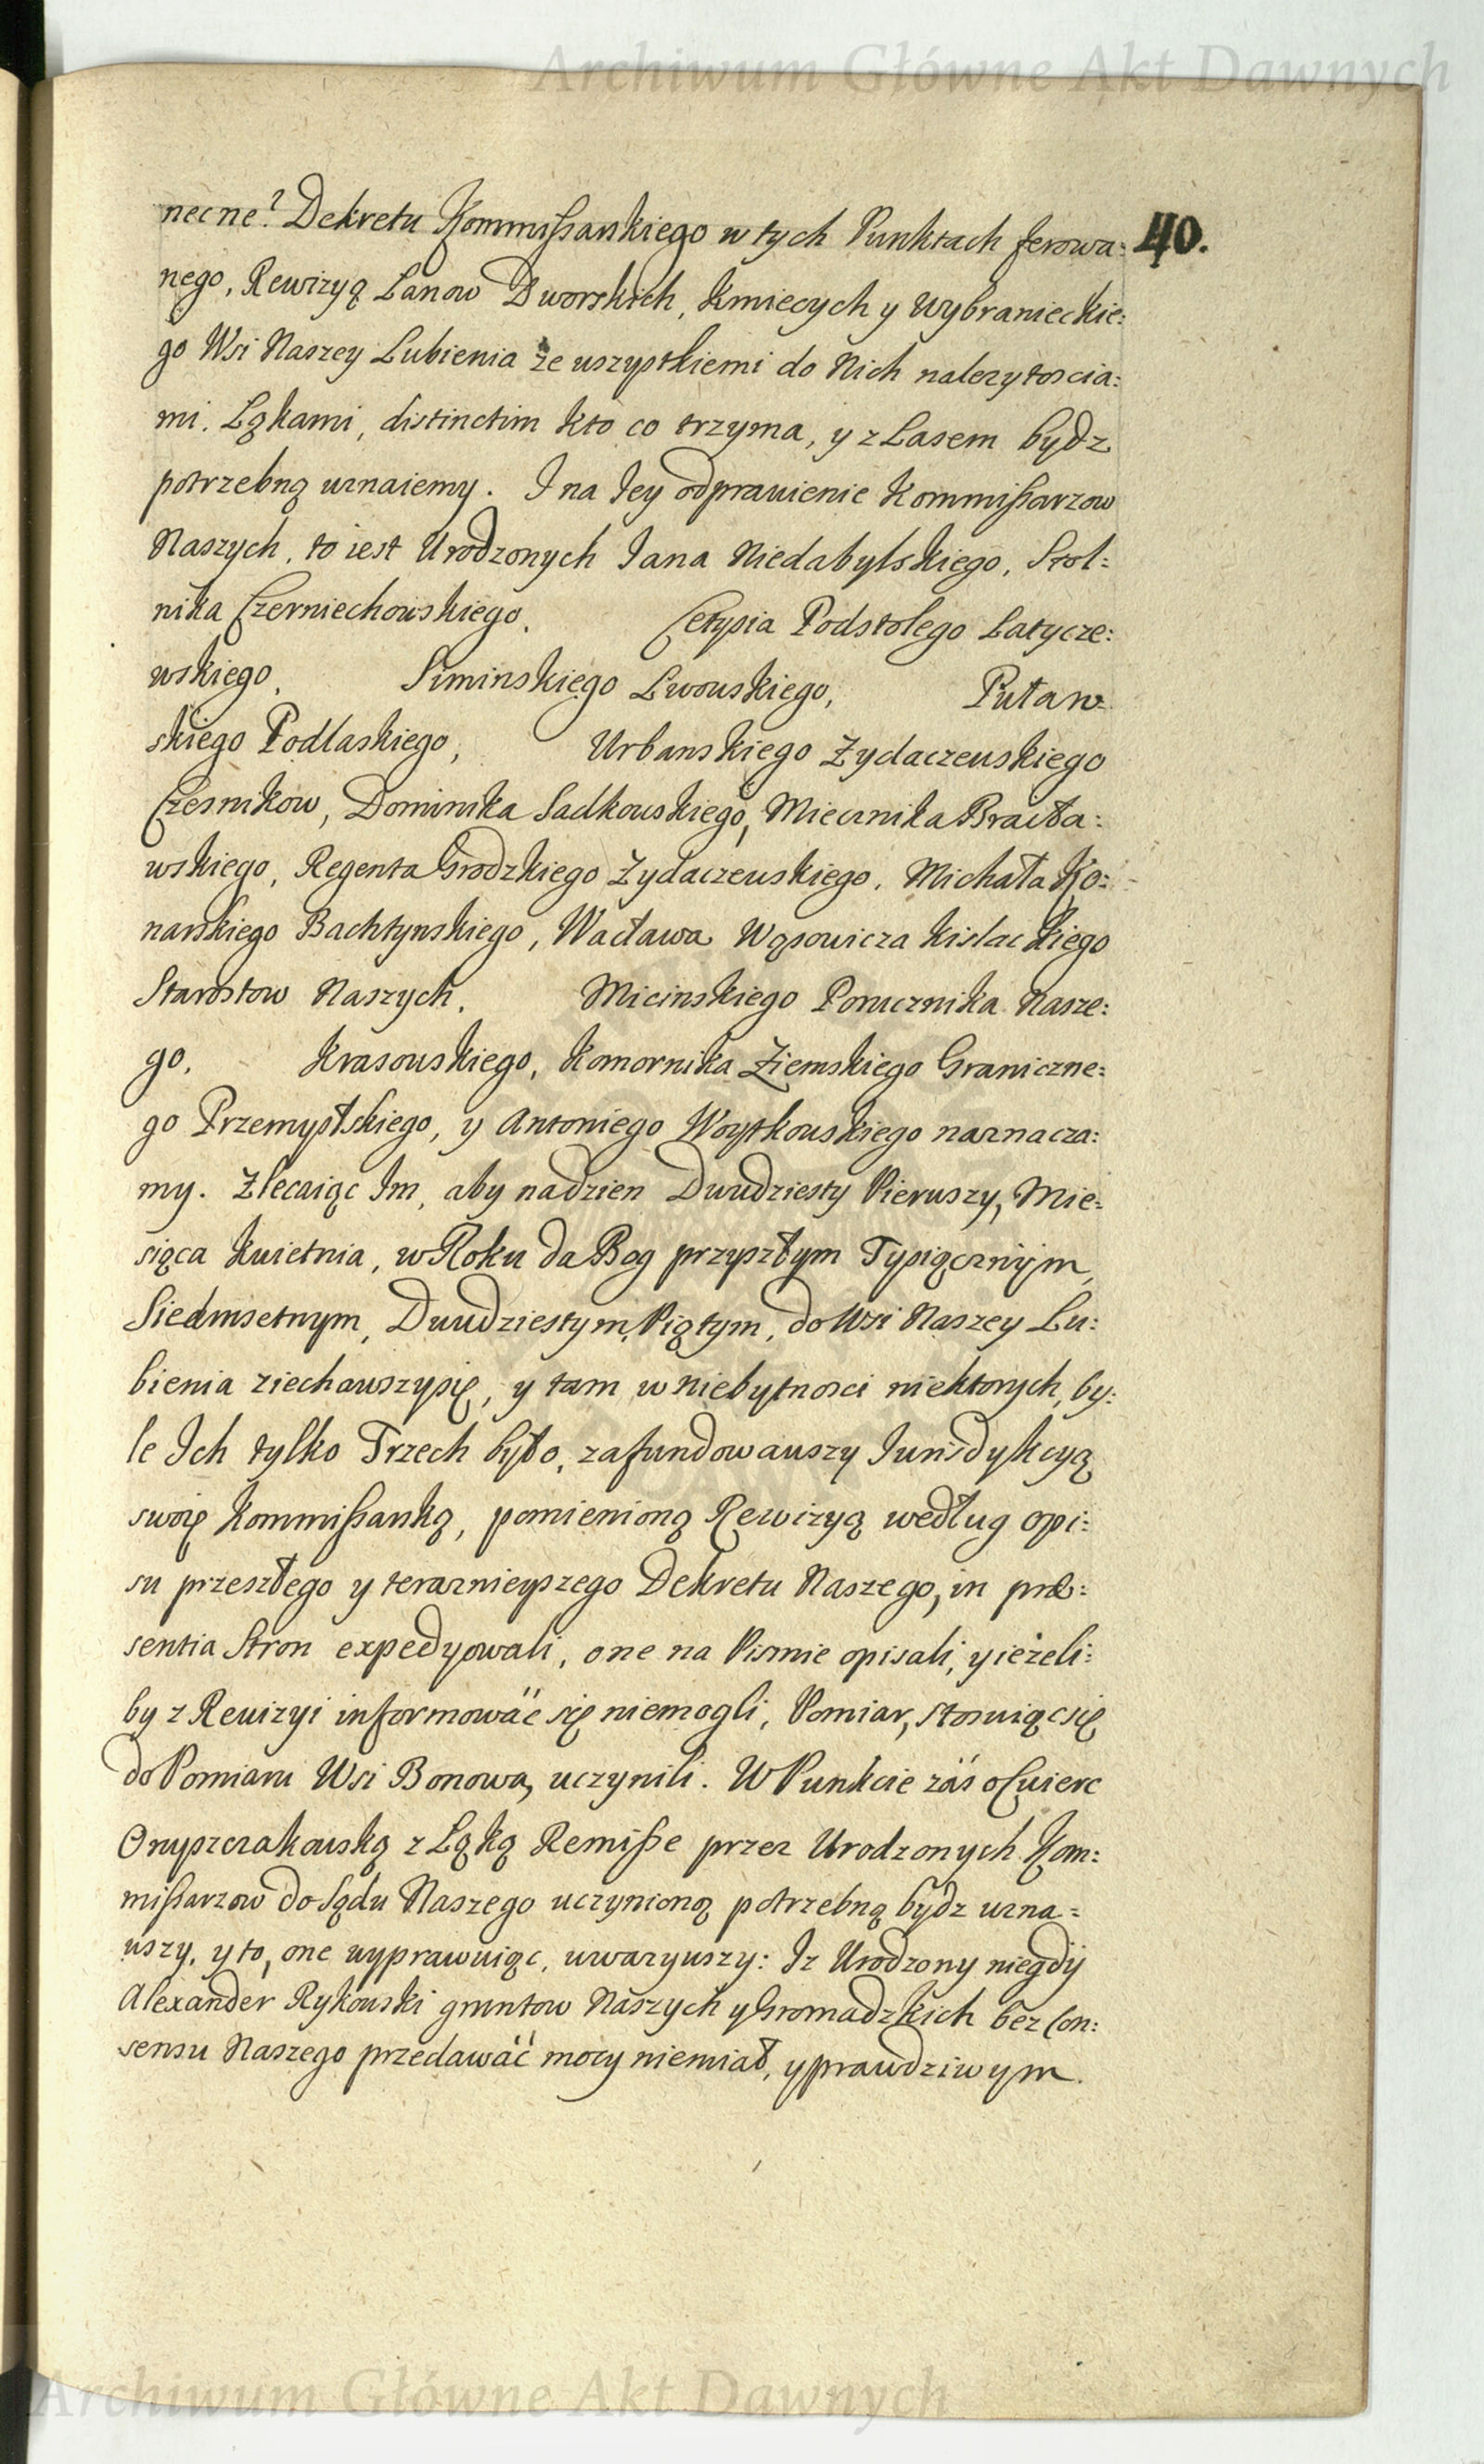 Archiwum Główne Akt Dawnych
40.
necne? Dekretu Kommissarskiego w tych Punktach ferowa:
nego, Rewizyą Lanow Dworskich, Kmiecych y Wybranieckie:
go Wsi Naszey Lubienia ze wszystkiemi do Nich nalezytoscia:
mi. Ląkami, distinctim kto co trzyma, y z Lasem bydz
potrzebną uznaiemy. I na Iey odprawienie Kommissarzow
Naszych, to iest Urodzonych Iana Niedabylskiego, Stol:
nika Czerniechowskiego, Cetysia Podstolego Latycze:
wskiego, Siminskiego Lwowskiego, Puław
skiego Podlaskiego, Urbanskiego Zydaczewskiego
Czesnikow, Dominika Sadkowskiego, Miecznika Bracła:
wskiego, Regenta Grodzkiego Zydaczewskiego, Michała Ko:
narskiego Bachtynskiego, Wacława Wąsowicza Kislackiego
Starostow Naszych, Micinskiego Porucznika Nasze:
go, Krasowskiego, Komornika Ziemskiego Graniczne:
go Przemysłskiego, y Antoniego Woytkowskiego naznacza:
my. Zlecaiąc Im, aby nadzien Dwudziesty Pierwszy, Mie:
siąca Kwietnia, w Roku da Bog przyszłym Tysiącznym,
Siedmsetnym, Dwudziestym Piątym, do Wsi Naszey Lu:
bienia ziechawszysię, y tam w niebytnosci niektorych, by:
le Ich tylko Trzech było, zafundowawszy Iurisdykcyą
swoię Kommissarską, pomienioną Rewizyą według opi:
su przeszłego y teraznieyszego Dekretu Naszego, in præ:
sentia Stron expedyowali, one na Pismie opisali, y ieżeli:
by z Rewizyi informowäć się niemogli, Pomiar, stosuiącsię
do Pomiaru Wsi Bonowa, uczynili. W Punkcie záś o Cwierc
Onyszczakowską z Ląką Remisse przez Urodzonych Kom:
missarzow do Sądu Naszego uczynioną potrzebną bydz uzna=
wszy, y to, one wyprawuiąc, uwazywszy: Iz Urodzony niegdy
Alexander Rykowski gruntow Naszych y Gromadzkich bez Con:
sensu Naszego przedawáć mocy niemiał, y prawdziwym
Archiwum Główne Akt Dawnych